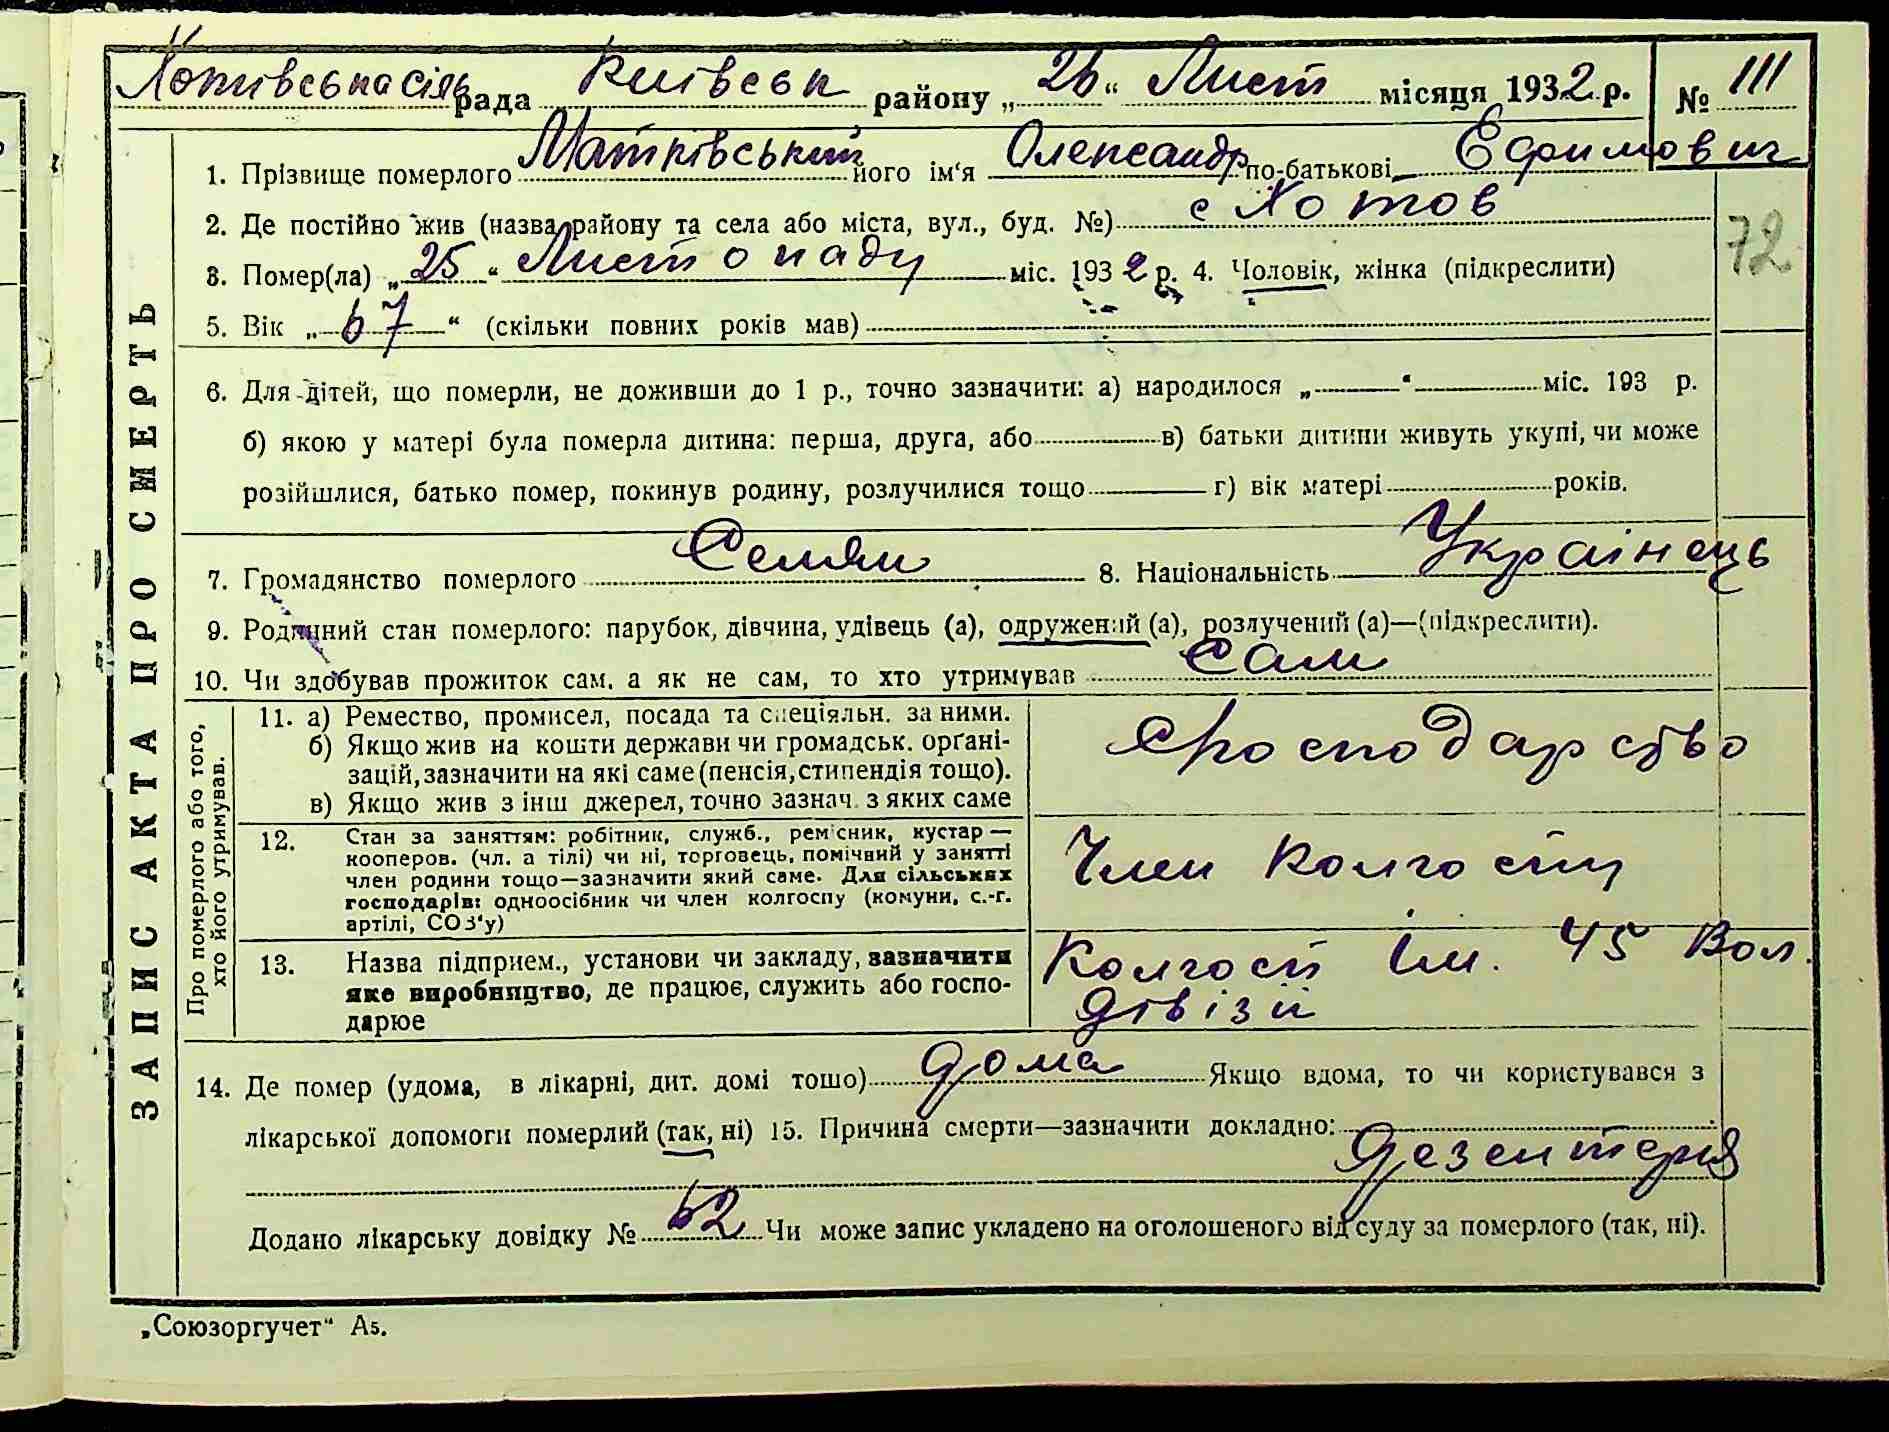 Хотівська сіль рада Київськ району „26“ Лист місяця 1932 р. № 111
1. Прізвище померлого Матківський його ім‘я Олександр по-батькові Ефимович
2. Де постійно жив (назва району та села або міста, вул., буд. №) с Хотов
72
3. Помер(ла) „25“ Листопаду міс. 1932 р. 4. Чоловік, жінка (підкреслити)
5. Вік „67“ (скільки повних років мав)
6. Для дітей, що померли, не доживши до 1 р., точно зазначити: а) народилося „—“ міс. 193 р.
б) якою у матері була померла дитина: перша, друга, або в) батьки дитини живуть укупі, чи може
розійшлися, батько помер, покинув родину, розлучилися тощо г) вік матері років.
7. Громадянство померлого Семян 8. Національність Українець
9. Родинний стан померлого: парубок, дівчина, удівець (а), одружений (а), розлучений (а)—(підкреслити).
10. Чи здобував прожиток сам, а як не сам, то хто утримував Сам
ЗАПИС АКТА ПРО СМЕРТЬ
Про померлого або того,
хто його утримував.
11. а) Ремество, промисел, посада та спеціяльн. за ними.
б) Якщо жив на кошти держави чи громадськ. орґані-
зацій, зазначити на які саме (пенсія, стипендія тощо).
в) Якщо жив з інш джерел, точно зазнач. з яких саме
Господарство
12. Стан за заняттям: робітник, служб., ремісник, кустар —
кооперов. (чл. артілі) чи ні, торговець, помічний у занятті
член родини тощо—зазначити який саме. Для сільських
господарів: одноосібник чи член колгоспу (комуни, с.-г.
артілі, СОЗ‘у)
Член колгоспу
13. Назва підприєм., установи чи закладу, зазначити
яке виробництво, де працює, служить або госпо-
дарює
Колгосп ім. 45 Вол.
дівізії
14. Де помер (удома, в лікарні, дит. домі тощо) дома Якщо вдома, то чи користувався з
лікарської допомоги померлий (так, ні) 15. Причина смерти—зазначити докладно:
дезентерия
Додано лікарську довідку № 62 Чи може запис укладено на оголошеного від суду за померлого (так, ні).
„Союзоргучет“ А5.